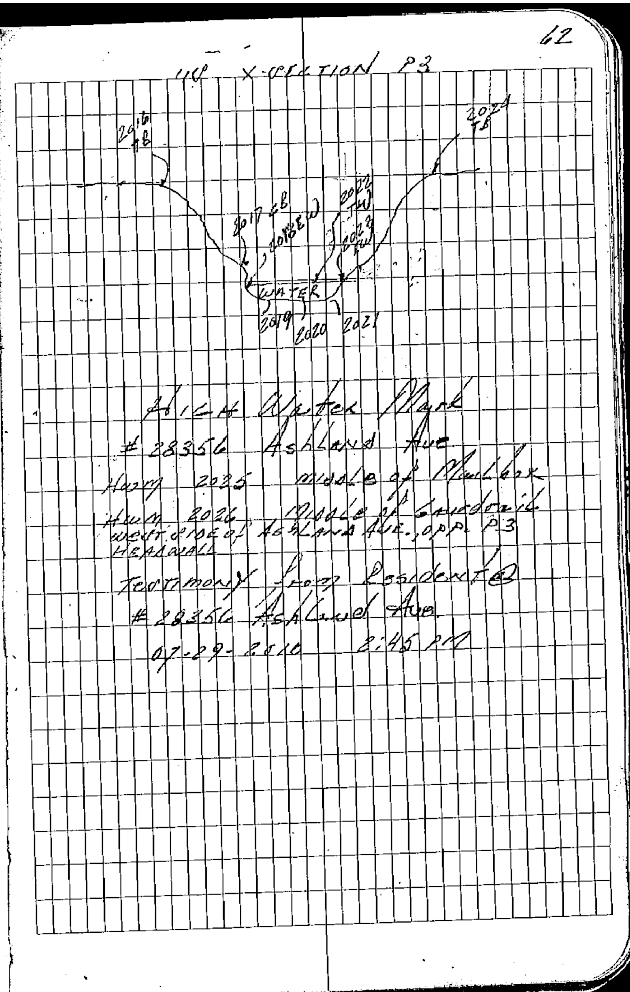 62
X-SECTION P3
2016 TB
2024 TB
2017 GB
2018 EW
2022 TW
2023 EW
WATER
2019
2020
2021
High Water Mark
# 28356 Ashland Ave
HWM 2025 middle of Mailbox
HWM 2026 Middle of Guardrail
west side of Ashland Ave., opp. P3
Headwall
Testimony from Resident @
# 28356 Ashland Ave.
07-29-2010 2:45 PM